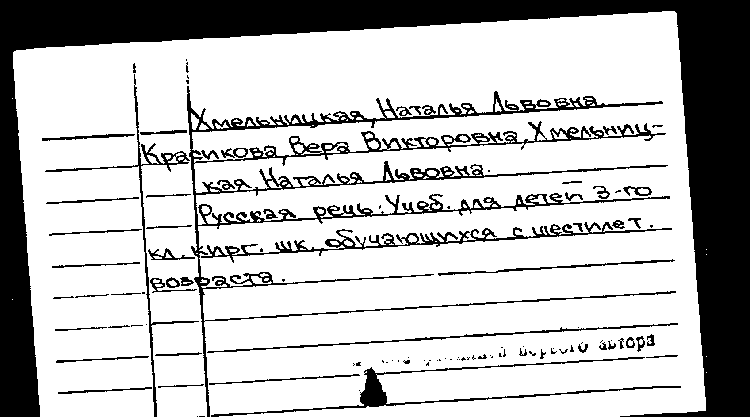 Хмельницкая, Наталья Львовна.
Красикова, Вера Викторовна, Хмельниц-
кая, Наталья Львовна.
Русская речь: Учеб. для детей 3-го
кл. кирг. шк., обучающихся с шестилет.
возраста.
первого автора